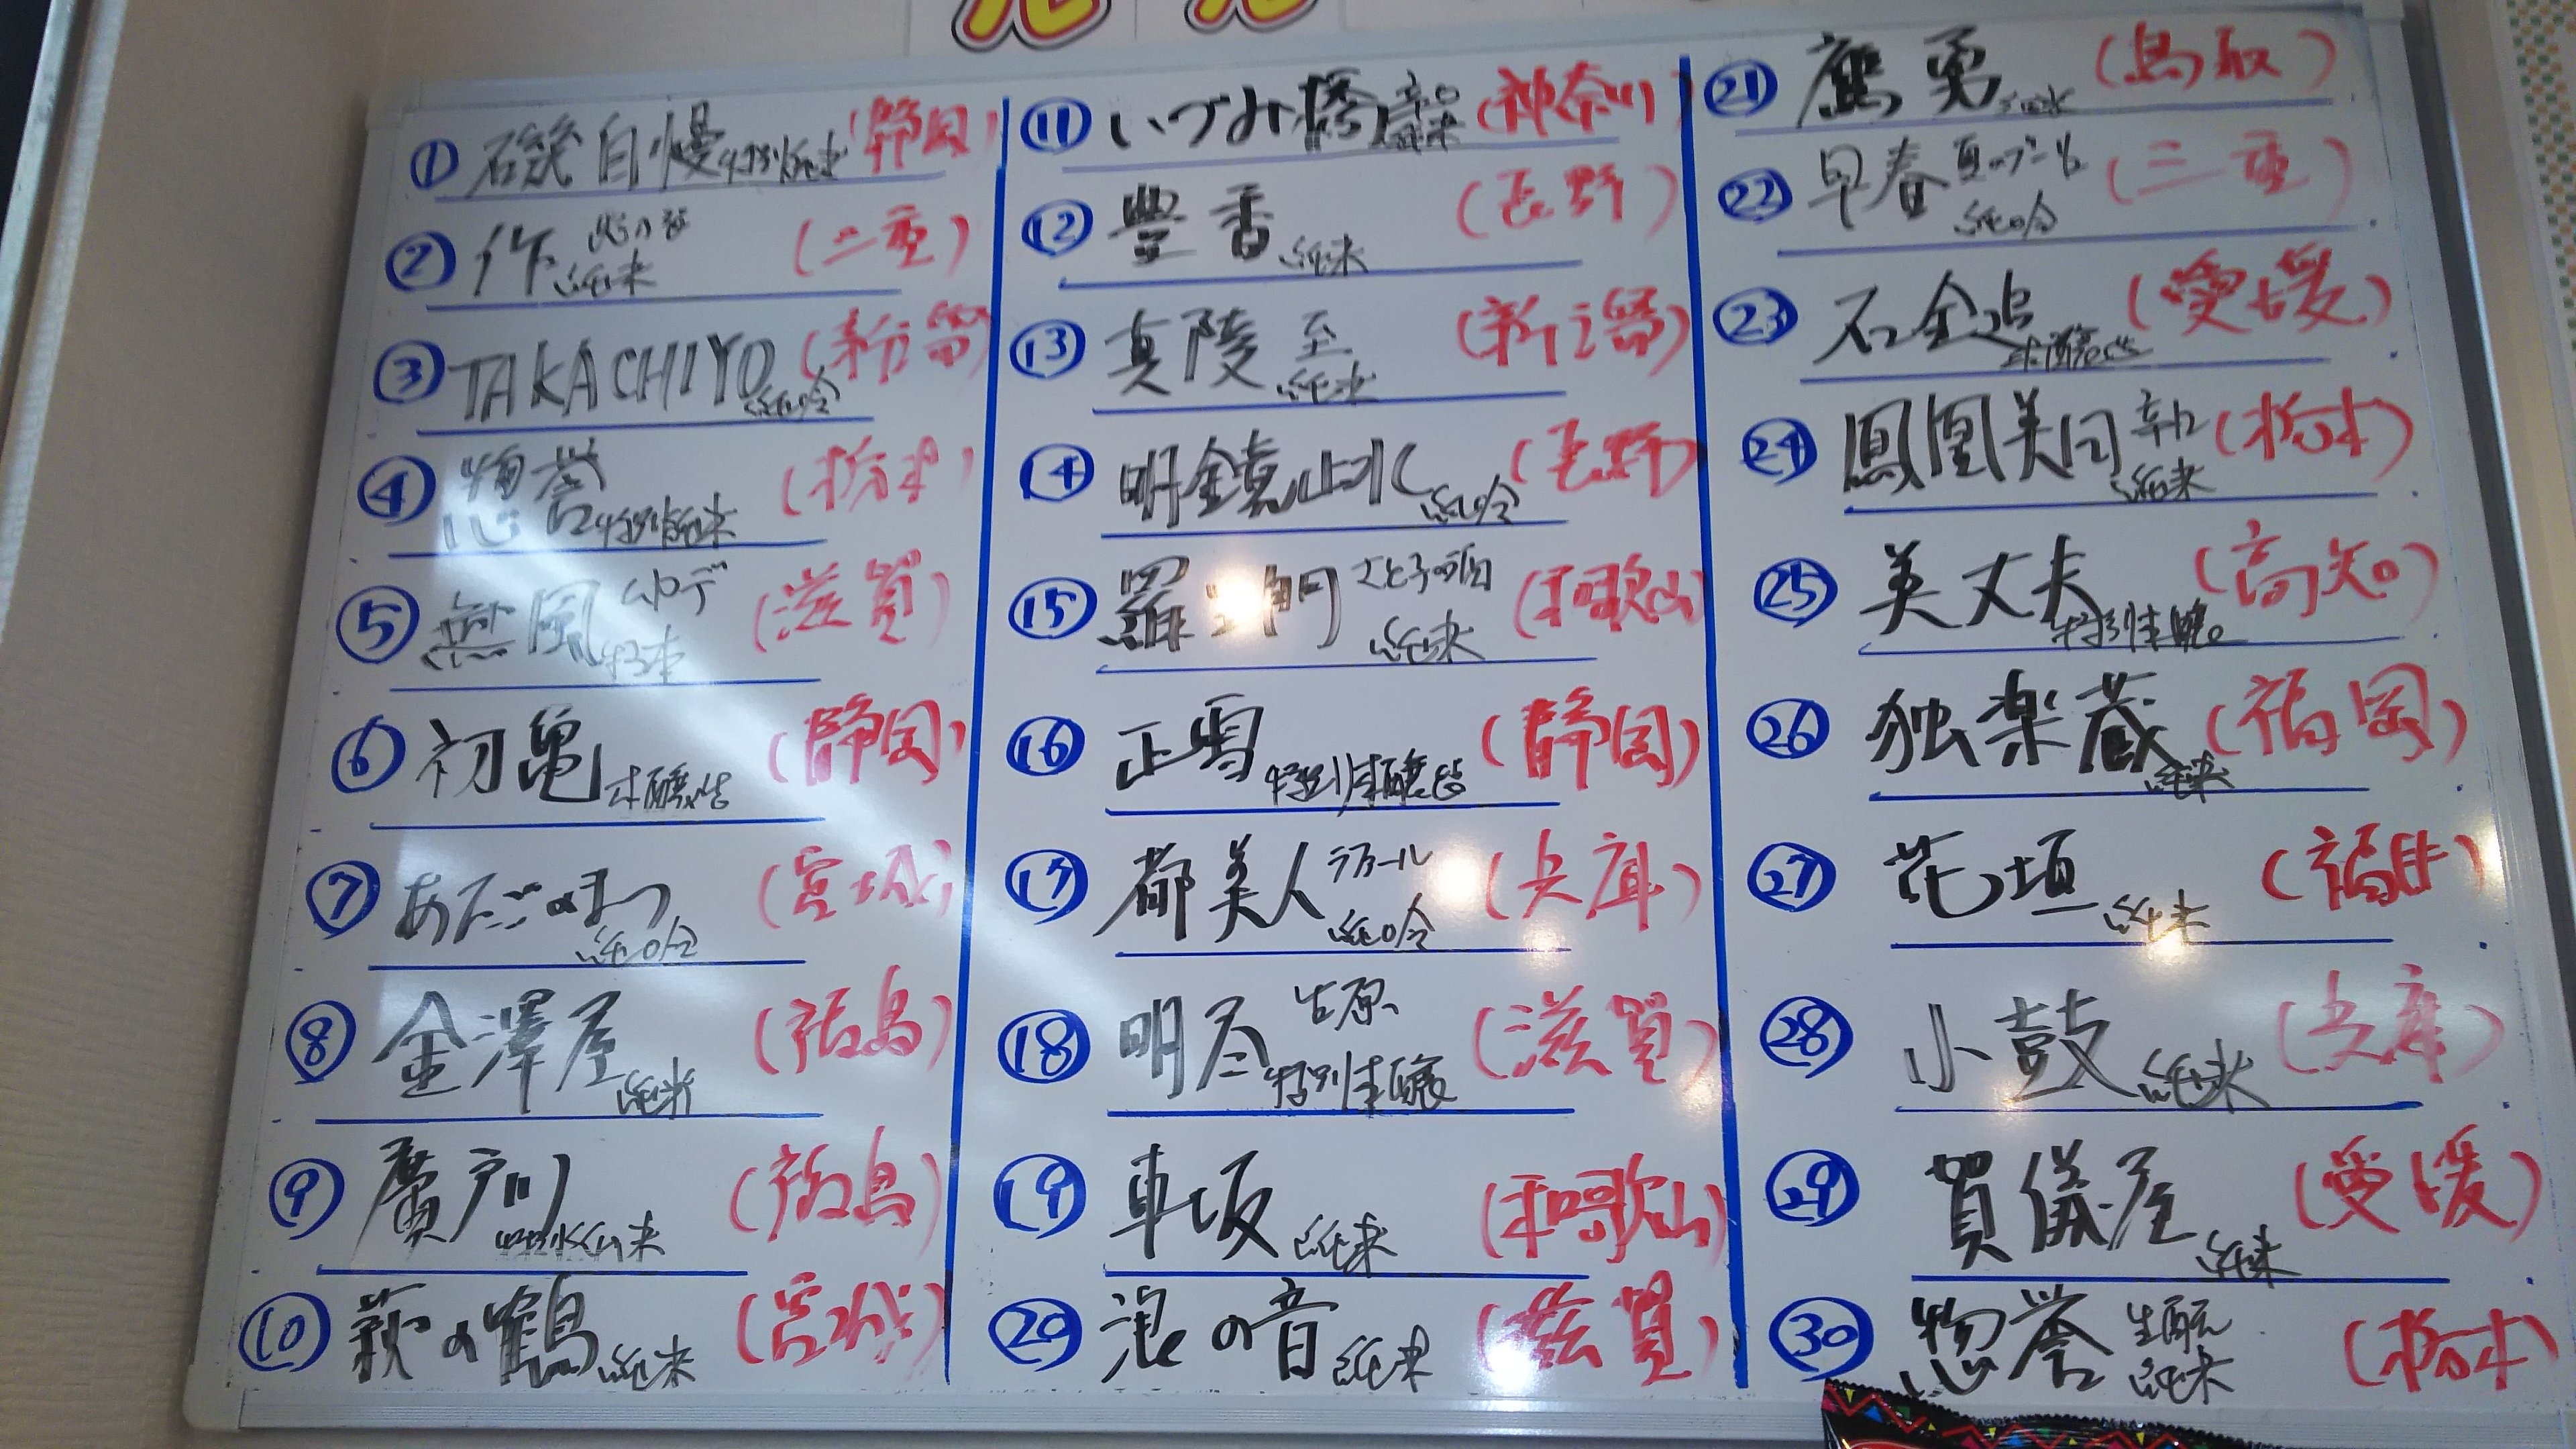 ① 磯自慢 特別純米 (静岡)
② 作 純米 (三重)
③ TAKACHIYO 純吟 (新潟)
④ 惣誉 特別純米 (栃木)
⑤ 無風 ムロデ 特本 (滋賀)
⑥ 初亀 本醸造 (静岡)
⑦ あたごのまつ 純吟 (宮城)
⑧ 金澤屋 純米 (福島)
⑨ 廣戸川 純米 (福島)
⑩ 萩の鶴 純米 (宮城)
⑪ いづみ橋 辛口 純米 (神奈川)
⑫ 豊香 純米 (長野)
⑬ 真陵 至 純米 (新潟)
⑭ 明鏡止水 純吟 (長野)
⑮ 羅生門 さと子の酒 純米 (和歌山)
⑯ 正雪 特別本醸造 (静岡)
⑰ 都美人 純吟 (兵庫)
⑱ 明尽 生原 特別本醸 (滋賀)
⑲ 車坂 純米 (和歌山)
⑳ 浪の音 純米 (滋賀)
㉑ 鷹勇 純米 (鳥取)
㉒ 早春 純吟 (三重)
㉓ 石金追 本醸造 (愛媛)
㉔ 鳳凰美田 辛口 純米 (栃木)
㉕ 美丈夫 特別本醸 (高知)
㉖ 独楽蔵 純米 (福岡)
㉗ 花垣 純米 (福井)
㉘ 小鼓 純米 (兵庫)
㉙ 賀儀屋 純米 (愛媛)
㉚ 惣誉 生酛 純米 (栃木)